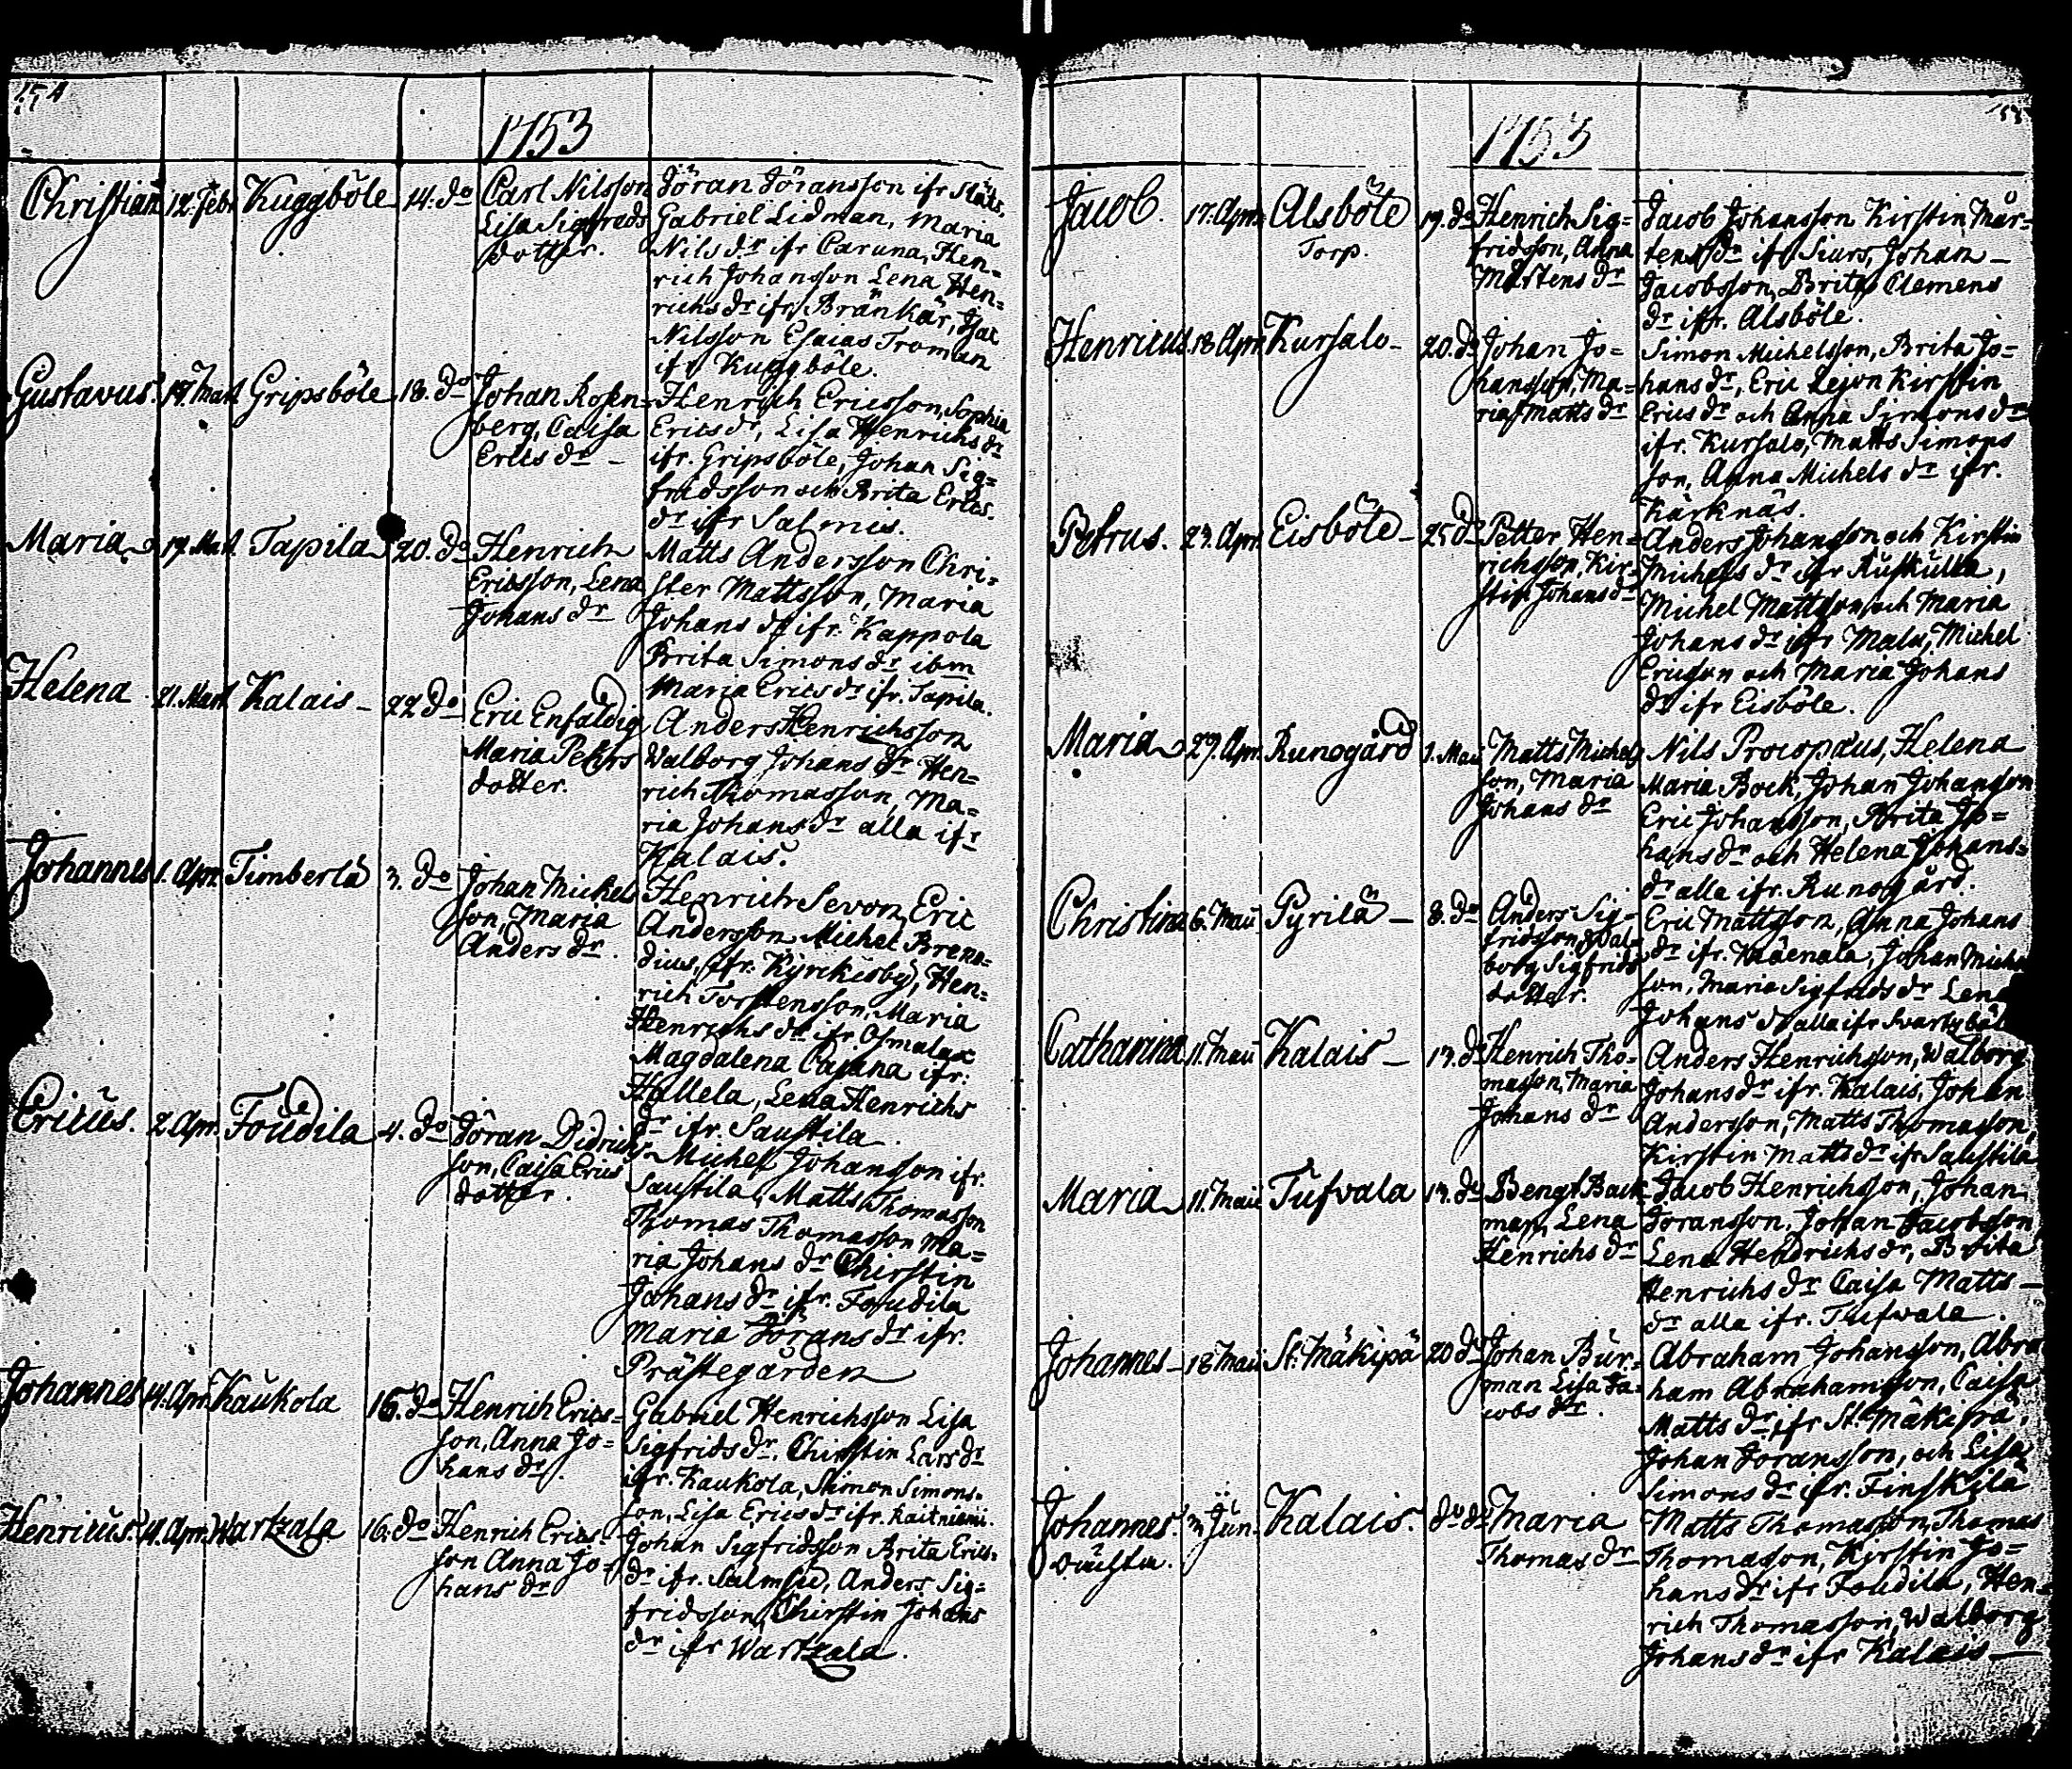 154
1753
Christian 12. Febr. Kuggböle 14. do Carl Nilsson
Lisa Sigfrids
dotter.
Jöran Jöransson ifr
Gabriel Lidman, Maria
Nils dr ifr Caruna, Hen=
rich Johansson Lena Hen=
richs dr ifr Bränkär, Isac
Nilsson Esaias Troman
ifr Kuggböle.
Gustavus. 17. Mart Gripsböle 18. do Johan Rosen=
berg, Caisa
Erics dr
Henrich Ericsson, Sophia
Erics dr, Lisa Henrichs dr
ifr. Gripsböle, Johan Sig=
fridsson och Brita Erics.
dr ifr Salmis.
Maria 19. Mart. Tapila 20. do Henrich
Ericsson, Lena
Johans dr
Matts Andersson Chri=
ster Mattsson, Maria
Johans dr ifr. Kappola
Brita Simons dr ibm
Maria Erics dr ifr. Tapila.
Helena 21. Mart Kalais 22 do Eric Enfaldig
Maria Pehrs
dotter.
Anders Henrichsson
Walborg Johans dr Hen=
rich Thomasson, Ma=
ria Johans dr alla ifr
Kalais.
Johannes 1. Apr. Timberlä 3. do Johan Michels
son, Maria
Anders dr.
Henrich Sevon, Eric
Andersson Michel Breno=
dius, ifr. Kyrckioby, Hen=
rich Torstensson, Maria
Henrichs dr ifr. Osmalax
Magdalena Cajana ifr.
Hallela, Lena Henrichs
dr ifr. Saustila
Ericus. 2 Apr. Foudila 4. do Jöran Didrichs
son, Caisa Erics
dotter.
Michel Johansson ifr.
Saustila, Matts Thomasson
Thomas Thomasson Ma=
ria Johans dr Chirstin
Johans dr ifr. Foudila
Maria Jörans dr ifr.
Prästegården
Johannes 14. Apr. Kaukola 16. do Henrich Erics=
son, Anna Jo=
hans dr.
Gabriel Henrichsson Lisa
Sigfrids dr. Chirstin Lars dr
ifr. Kaukola, Simon Simons.
son, Lisa Erics dr ifr. Raitniemi.
Henricus. 14. Apr. Wartzala 16. do Henrich Erics
son Anna Jo=
hans dr
Johan Sigfridsson Brita Erics.
dr ifr. Salmsio, Anders Sig=
fridsson, Chirstin Johans
dr ifr Wartzala.
155
1753
Jacob. 17. Apr. Alsböle
Torp.
19. do Henrich Sig=
fridsson, Anna
Mårtens dr
Jacob Johansson Kirstin Mår=
tens dr ifr Siurs, Johan
Jacobsson, Brita Clemens
dr ifr. Alsböle.
Henricus 18 Apr. Kursalo 20. do Johan Jo=
hansson, Ma=
ria Matts dr
Simon Michelsson, Brita Jo=
hans dr, Eric Lejon Kirstin
Erics dr och Anna Simons dr
ifr. Kursalo, Matts Simons
son, Anna Michels dr ifr.
Kärknäs.
Petrus. 23. Apr. Eisböle 25 do Petter Hen=
richsson, Kir=
stin Johans dr
Anders Johansson och Kirstin
Michels dr ifr Ruskulla,
Michel Mattsson och Maria
Johans dr ifr Mala, Michel
Ericsson och Maria Johans
dr ifr Eisböle.
Maria 29. Apr. Runogård 1. Maii Matts Michels
son, Maria
Johans dr
Nils Procopæus, Helena
Maria Bock, Johan Johansson
Eric Johansson, Brita Jo=
hans dr och Helena Johans=
dr alla ifr. Runogård.
Christina 6. Maii Pyrilä 8. do Anders Sig=
fridsson, Wal=
borg Sigfrids
dotter.
Eric Mattsson, Anna Johans
dr ifr. Johan Miche
son, Maria Sigfrids dr Lena
Johans dr alla ifr Svartzböl
Catharina 11. Maii Kalais 13. do Henrich Tho=
masson, Maria
Johans dr
Anders Henrichsson, Walborg
Johans dr ifr. Kalais, Johan
Andersson, Matts Thomasson,
Kirstin Matts dr ifr Saustila
Maria 11. Maii Tufvala 13. do Bengt Back
man, Lena
Henrichs dr
Jacob Henrichsson, Johan
Joransson, Johan Jacobsson
Lena Hendrichs dr, Brita
Henrichs dr Caisa Matts
dr alla ifr. Tufwala.
Johannes 18 Maii St. Mäkipä 20 do Johan Bur=
man Lisa Ja=
cobs dr.
Abraham Johansson, Abra
ham Abrahamsson, Caisa
Matts dr ifr St. Mäkipä,
Johan Joransson, och Lisa
Simons dr ifr. Finskila
Johannes. 3. Jun. Kalais. do do Maria
Thomas dr
oächta.
Matts Thomasson, Thomas
Thomasson, Kirstin Jo=
hans dr ifr Foudila, Hen=
rich Thomasson, Walborg
Johans dr ifr Kalais